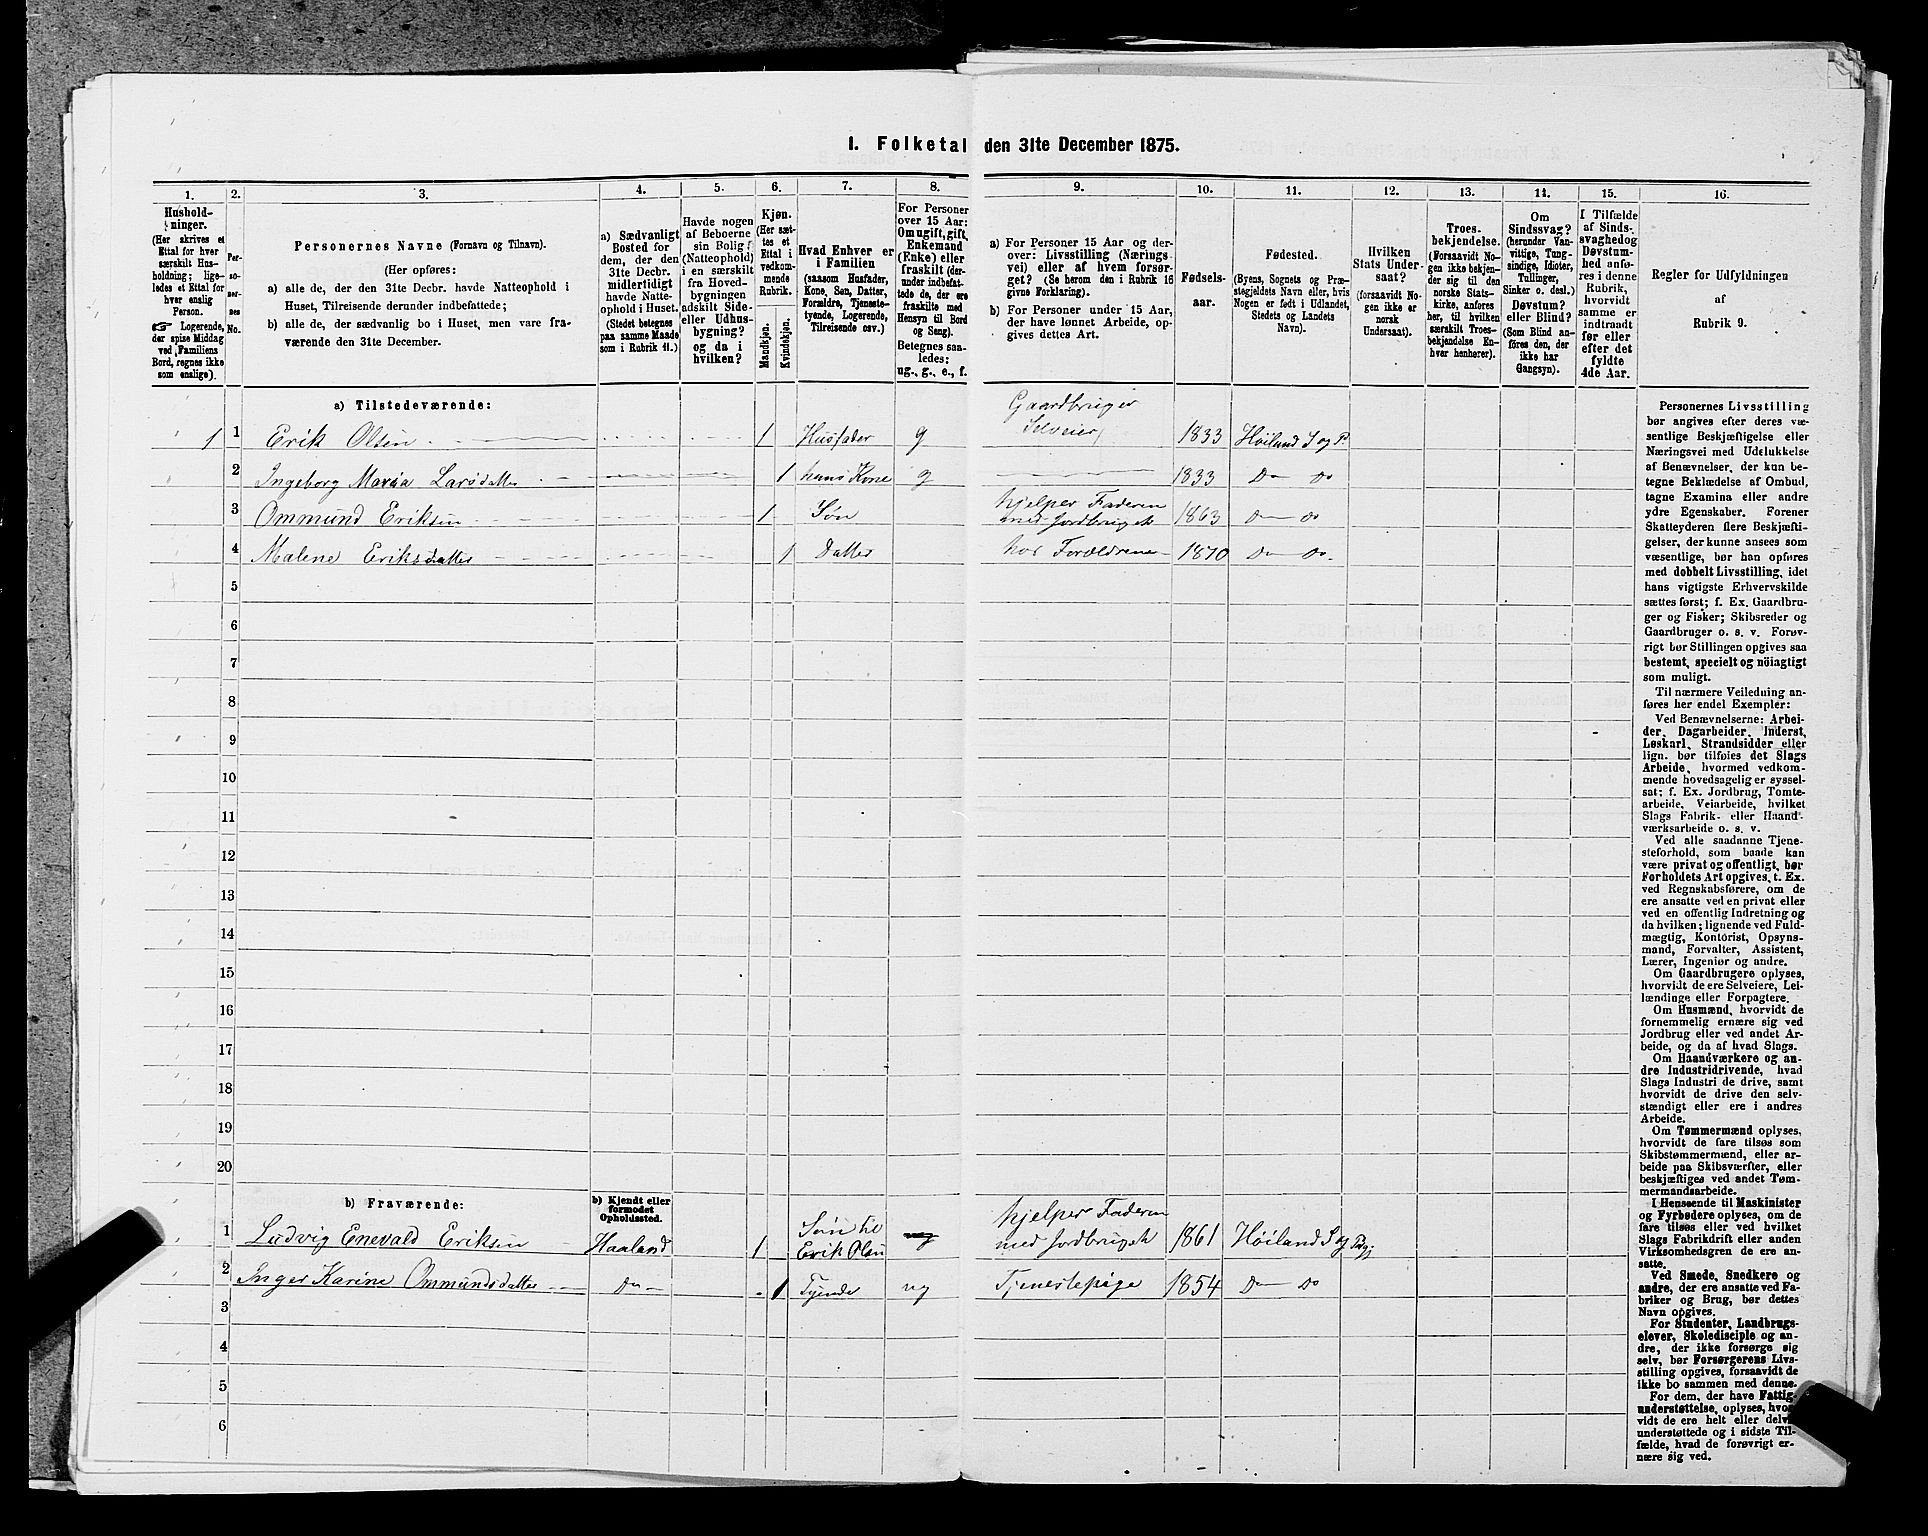 1. Folketal den 31te December 1875.
1.
2.
3.
4.
5.
6.
7.
8.
9.
10.
11.
12.
13.
14.
15.
16.
Hushold-
ninger.
(Her skrives et
Ettal for hver
særskilt Hus-
holdning; lige-
ledes et Ettal for
hver enslig
Person.
☞ Logerende,
der spise Middag
ved Familiens
Bord, regnes ikke
som enslige).
Per-
so-
ner-
nes
No.
Personernes Navne (Fornavn og Tilnavn).
(Her opføres:
a) alle de, der den 31te Decbr. havde Natteophold i
Huset, Tilreisende derunder indbefattede;
b) alle de, der sædvanlig bo i Huset, men vare fra-
værende den 31te December.
a) Sædvanligt
Bosted for
dem, der den
31te Decbr.
midlertidigt
havde Natte-
ophold i Huset.
(Stedet betegnes
paa samme Maade
som i Rubrik 11.)
Havde nogen
af Beboerne
sin Bolig
(Natteophold)
i en særskilt
fra Hoved-
bygningen
adskilt Side-
eller Udhus-
bygning?
og da i
hvilken?
Kjøn.
(Her sæt-
tes et
Ettal i
vedkom-
mende
Rubrik.
Mandkjøn.
Kvindekjøn.
Hvad Enhver er
i Familien
(saasom Husfader,
Kone, Søn, Datter,
Forældre, Tjeneste-
tyende, Logerende,
Tilreisende osv.)
For Personer
over 15 Aar:
Om ugift, gift,
Enkemand
(Enke) eller
fraskilt (der-
under indbefat-
tede de, der ere
fraskilte med
Hensyn til Bord
og Seng).
Betegnes saa-
ledes:
ug., g., e., f.
a) For Personer 15 Aar og der-
over: Livsstilling (Nærings-
vei) eller af hvem forsør-
get? (Se herom den i Rubrik 16
givne Forklaring).
b) For Personer under 15 Aar,
der have lønnet Arbeide, op-
gives dettes Art.
Fødsels-
aar.
Fødested.
(Byens, Sognets og Præ-
stegjeldets Navn eller, hvis
Nogen er født i Udlandet,
Stedets og Landets
Navn).
Hvilken
Stats Under-
saat?
(forsaavidt No-
gen ikke er
norsk
Undersaat).
Troes-
bekjendelse.
(Forsaavidt No-
gen ikke bekjen-
der sig til den
norske Stats-
kirke, anføres
her, til hvilken
særskilt Troes-
bekjendelse En-
hver henhører).
Om
Sindssvag?
(herunder Van-
vittige, Tung-
sindige, Idioter,
Tullinger,
Sinker o. desl.)
Døvstum?
eller Blind?
(Som Blind an-
føres den, der
ikke har
Gangsyn).
I Tilfælde
af Sinds-
svaghed og
Døvstum-
hed anfø-
res i denne
Rubrik,
hvorvidt
samme er
indtraadt
før eller
efter det
fyldte
4de Aar.
Regler for Udfyldningen
af
Rubrik 9.
a) Tilstedeværende:
1 1 Erik Olsen 1 Husfader g Gaardbruger
Selveier 1833 Høiland S og P.
2 Ingeborg Maria Larsdatter 1 hans Kone g 1833 Do Do
3 Ommund Eriksen 1 Søn hjelper Faderen
med Jordbruget 1863 Do Do
4 Malene Eriksdatter 1 Datter hos Forældrene 1870 Do Do
5
6
7
8
9
10
11
12
13
14
15
16
17
18
19
20
b) Fraværende:
b) Kjendt eller
formodet
Opholdssted.
1 Ludvig Enevald Eriksen Haaland 1 Søn til
Erik Olsen ug hjelper Faderen
med Jordbruget 1861 Høiland S og
2 Inger Karine Ommundsdatter Do 1 Tyende ug Tjenestepige 1854 Do Do
3
4
5
6
Personernes Livsstilling
bør angives efter deres væ-
sentlige Beskjæftigelse eller
Næringsvei med Udelukkelse
af Benævnelser, der kun be-
tegne Beklædelse af Ombud,
tagne Examina eller andre
ydre Egenskaber. Forener
Skatteyderen flere Beskjæfti-
gelser, der kunne ansees som
væsentlige, bør han opføres
med dobbelt Livsstilling, idet
hans vigtigste Erhvervskilde
sættes først; f. Ex. Gaardbru-
ger og Fisker; Skibsreder og
Gaardbruger o. s. v. Forøv-
rigt bør Stillingen opgives saa
bestemt, specielt og nöiagtigt
som muligt.
Til nærmere Veiledning an-
føres her endel Exempler:
Ved Benævnelserne: Arbei-
der, Dagarbeider, Inderst,
Løskarl, Strandsidder eller
lign. bør tilføies det Slags
Arbeide, hvormed vedkom-
mende hovedsagelig er syssel-
sat; f. Ex. Jordbrug, Tomte-
arbeide, Veiarbeide, hvilket
Slags Fabrik- eller Haand-
værksarbeide o. s. v.
Ved alle saadanne Tjene-
steforhold, som baade kan
være privat og offentligt, bør
Forholdets Art opgives, t. Ex.
ved Regnskabsførere, om de
ere ansatte ved en privat eller
ved en offentlig Indretning og
da hvilken; lignende ved Fuld-
mægtig, Kontorist, Opsyns-
mand, Forvalter, Assistent,
Lærer, Ingeniør og andre.
Om Gaardbrugere oplyses,
hvorvidt de ere Selveiere, Lei-
lændinge eller Forpagtere.
Om Husmænd, hvorvidt de
fornemmelig ernære sig ved
Jordbrug eller ved andet Ar-
beide, og da af hvad Slags.
Om Haandværkere og an-
dre Industridrivende, hvad
Slags Industri de drive, samt
hvorvidt de drive den selv-
stændigt eller ere i andres
Arbeide.
Om Tømmermænd oplyses,
hvorvidt de fare tilsøs som
Skibstømmermænd, eller ar-
beide paa Skibsværfter, eller
beskjæftiges ved andet Tøm-
mermandsarbeide.
I Henseende til Maskinister
og Fyrbødere oplyses, om de
fare tilsøs eller ved hvilket
Slags Fabrikdrift eller anden
Virksomhedsgren de ere an-
satte.
Ved Smede, Snedkere og
andre, der ere ansatte ved Fa-
briker og Brug, bør dettes
Navn opgives.
For Studenter, Landbrugs-
elever, Skoledisciple og an-
dre, der ikke forsørge sig
selv, bør Forsørgerens Livs-
stilling opgives, forsaavidt de
ikke bo sammen med denne.
For dem, der have Fattig-
understøttelse, oplyses, hvor-
vidt de ere helt eller delvis
understøttede og i sidste Til-
fælde, hvad de forøvrigt er-
nære sig ved.